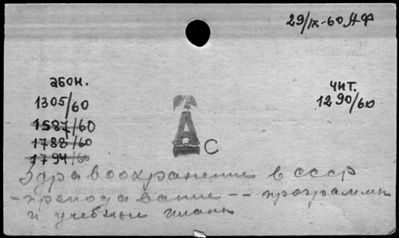 29/IX-60 АФ
абон.
1305/60
1587/60
1788/60
1794/60
чит.
1290/60
А с
Здравоохранение в СССР
-преподавание -- программы
и учебные планы